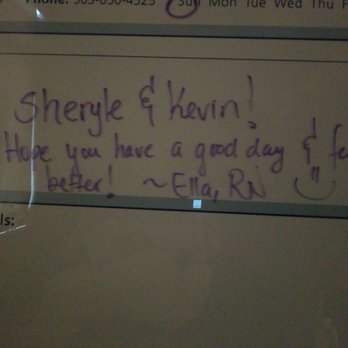 Phone: 903-696-4323 Sun Mon Tue Wed Thu F
Sheryle & Kevin!
Hope you have a good day & fe
better! ~Ella, RN
ls: